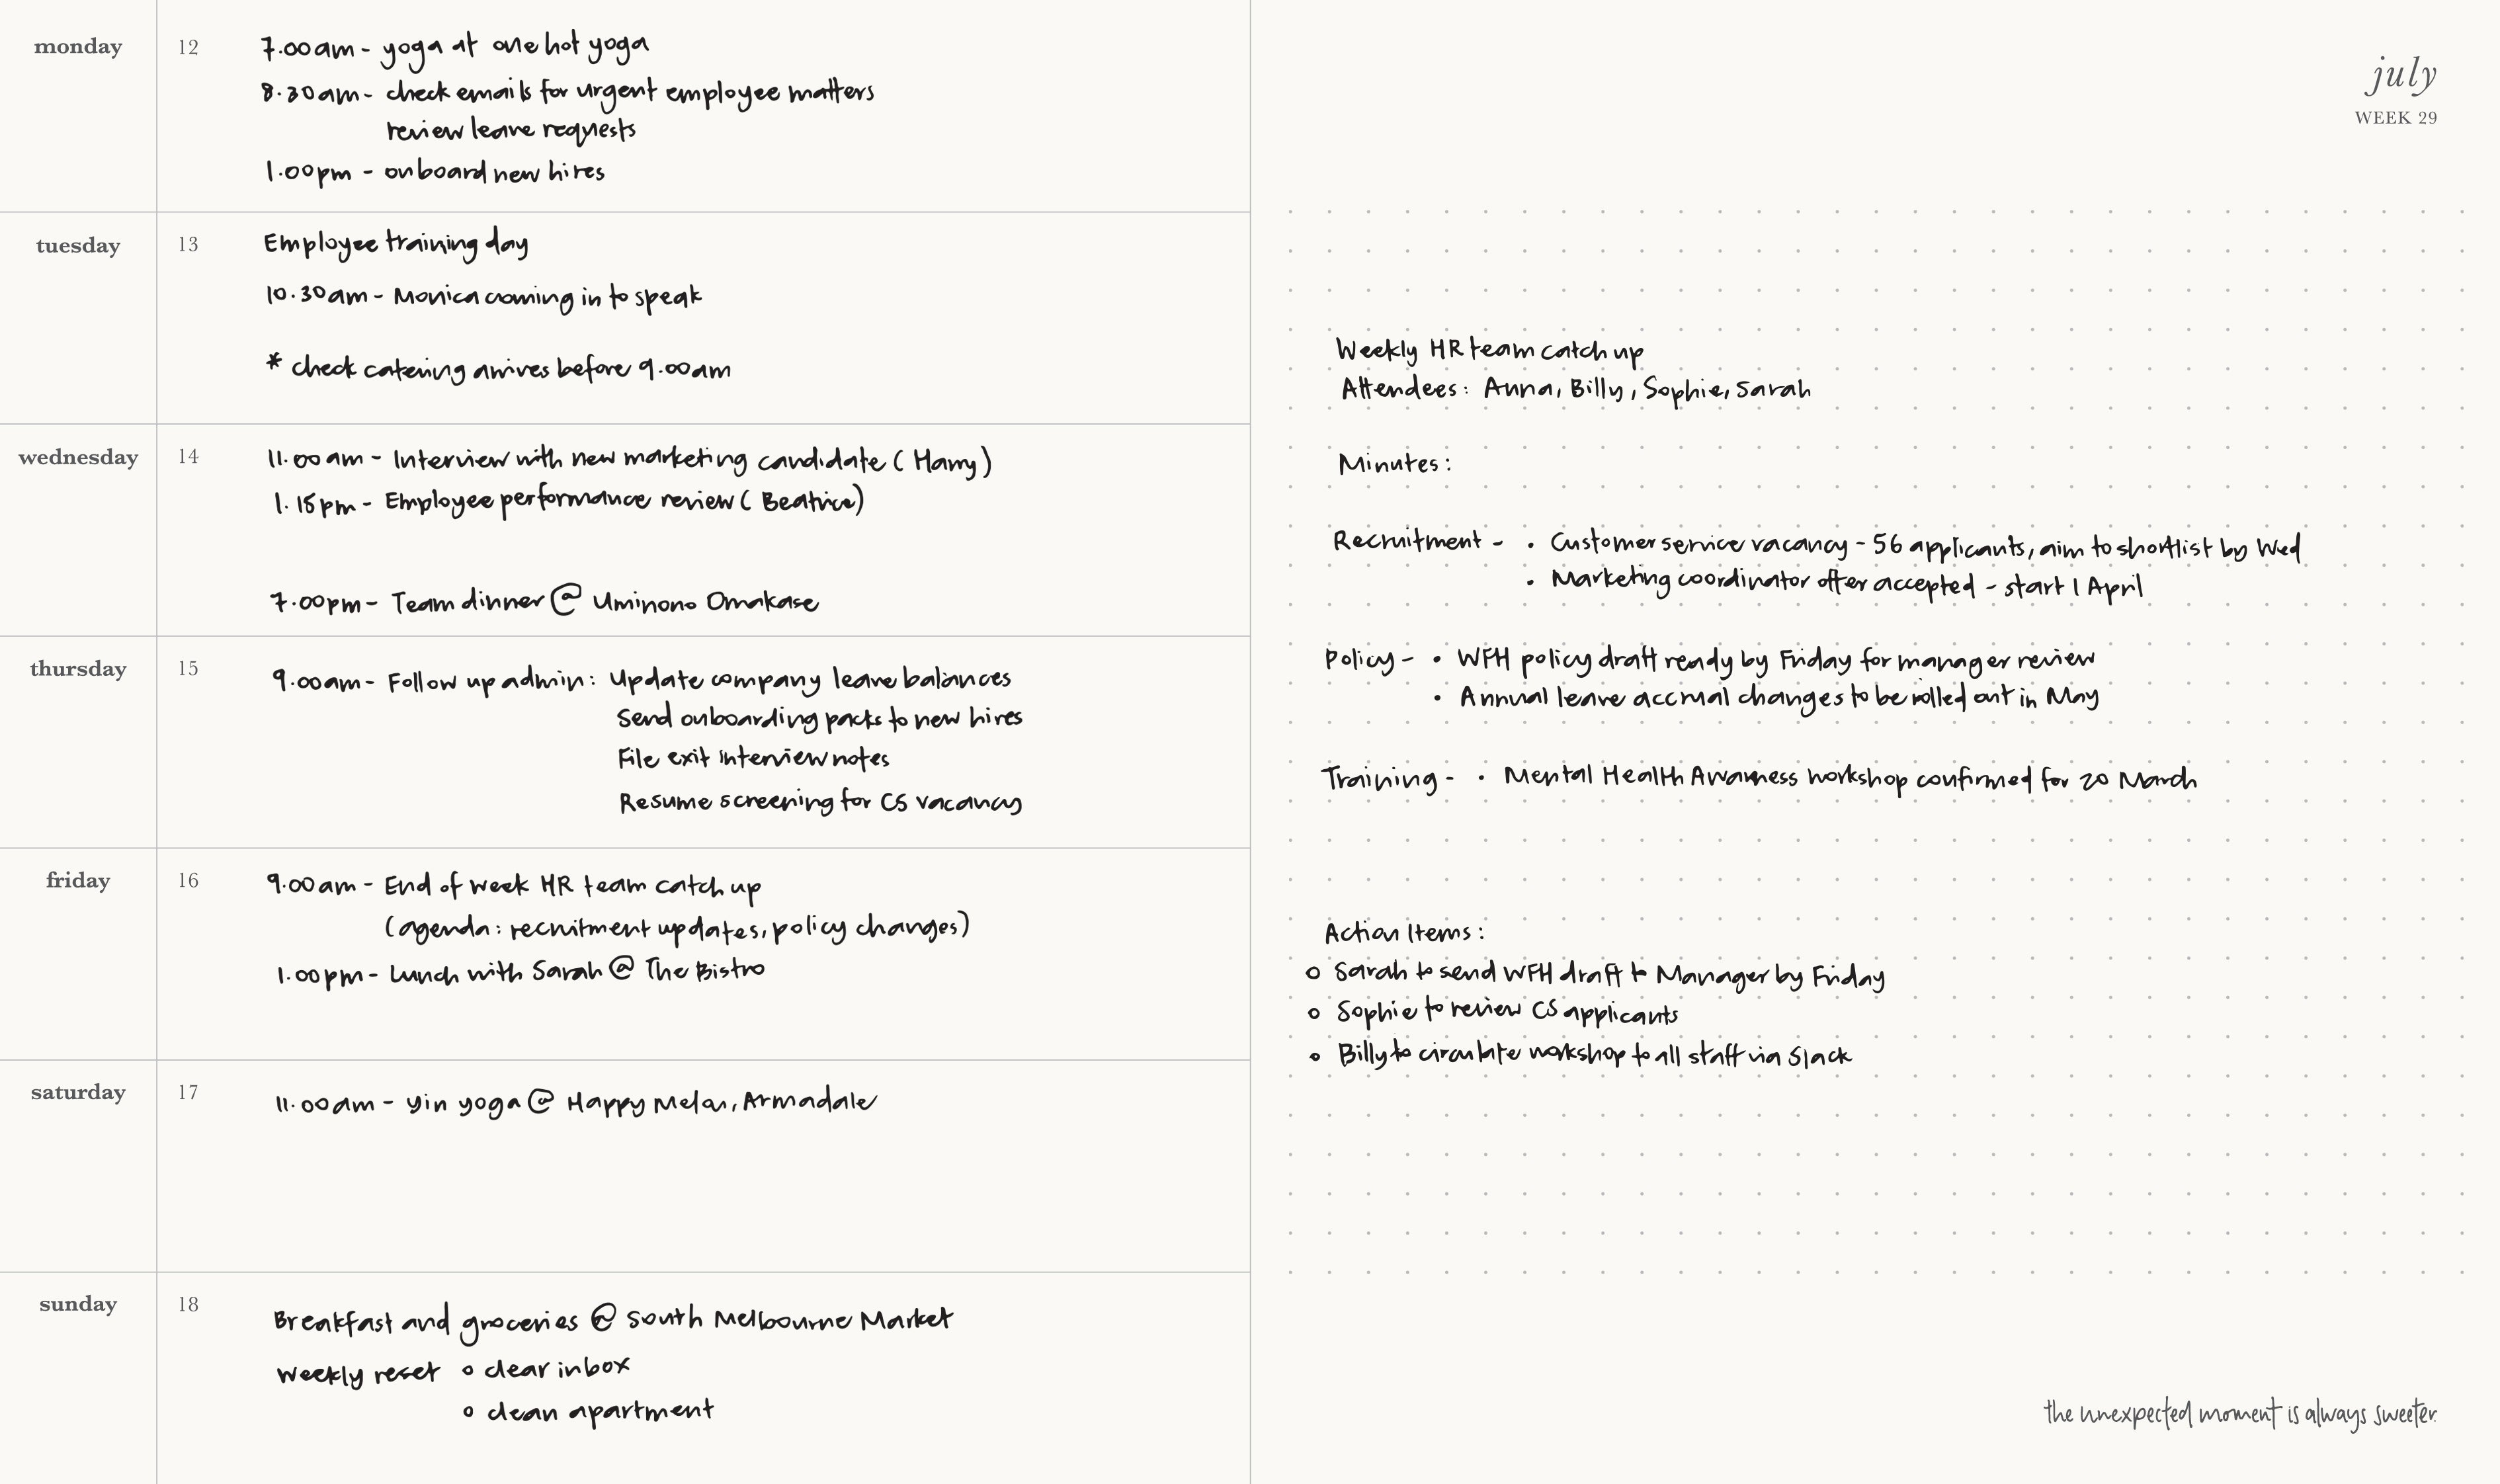 monday 12 7.00am - yoga at one hot yoga
8.30am - check emails for urgent employee matters
review leave requests
1.00pm - onboard new hires
tuesday 13 Employee training day
10.30am - Monica coming in to speak
* check catering arrives before 9.00am
wednesday 14 11.00am - Interview with new marketing candidate (Harry)
1.15pm - Employee performance review (Beatrice)
7.00pm - Team dinner @ Uminono Omakase
thursday 15 9.00am - Follow up admin: Update company leave balances
Send onboarding packs to new hires
File exit interview notes
Resume screening for CS vacancy
friday 16 9.00am - End of week HR team catch up
(agenda: recruitment updates, policy changes)
1.00pm - Lunch with Sarah @ The Bistro
saturday 17 11.00am - yin yoga @ Happy Melon, Armadale
sunday 18 Breakfast and groceries @ South Melbourne Market
weekly reset o clear inbox
o clean apartment
july
WEEK 29
Weekly HR team catch up
Attendees: Anna, Billy, Sophie, Sarah
Minutes:
Recruitment - • Customer service vacancy - 56 applicants, aim to shortlist by Wed
• Marketing coordinator offer accepted - start 1 April
Policy - • WFH policy draft ready by Friday for manager review
• Annual leave accrual changes to be rolled out in May
Training - • Mental Health Awareness workshop confirmed for 20 March
Action Items:
o Sarah to send WFH draft to Manager by Friday
o Sophie to review CS applicants
o Billy to circulate workshop to all staff via Slack
the unexpected moment is always sweeter.